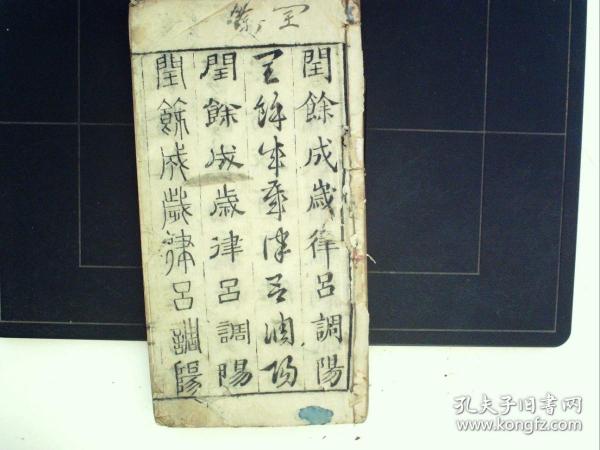 閏餘
閏餘成歲律呂調陽
閏餘成歲律呂調陽
閏餘成歲律呂調陽
閏餘成歲律呂調陽
孔夫子旧书网
www.kongfz.com